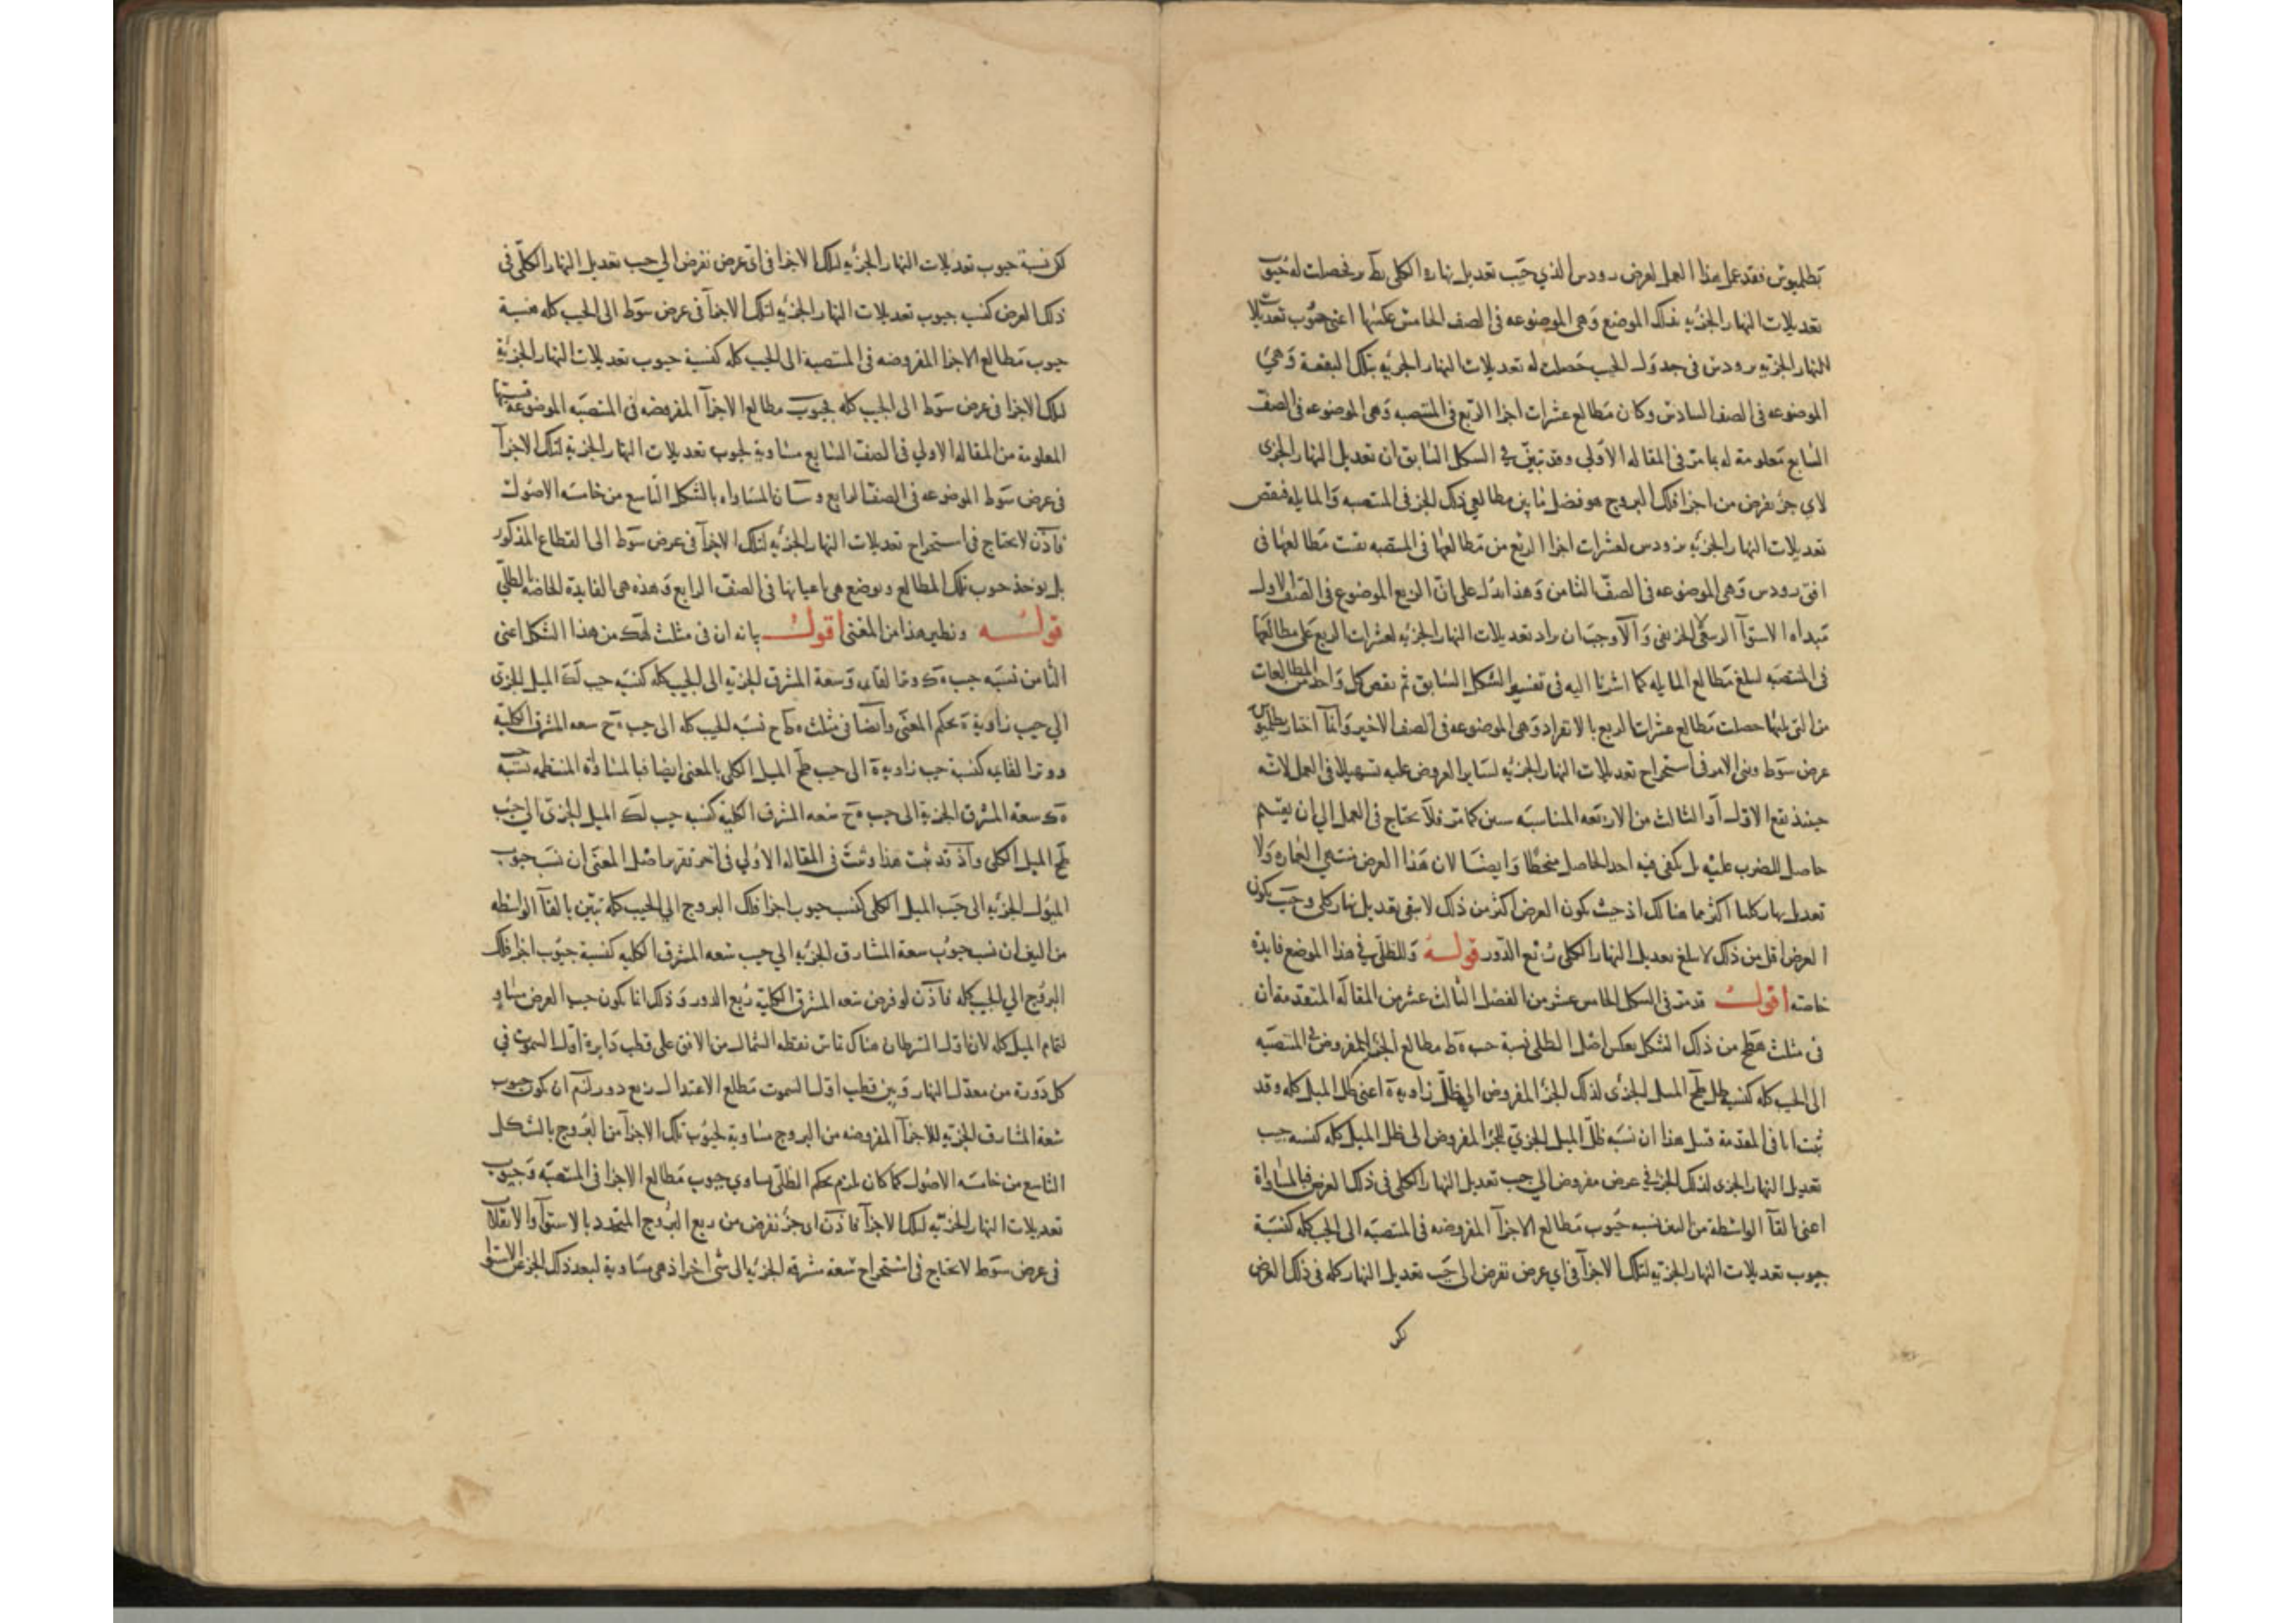 بطلميوس فقد عمل هذا العمل لعرض رودس الذي جيب تعديل نهاره الكلى فحصلت له جيوب
تعديلات النهار الجزئيه بذلك الموضع وهى الموضوعه فى الصف الخامس عكسها اعنى جيوب تعديلات
النهار الجزئيه برودس فى جدول الجيب حصلت له تعديلات النهار الجزئيه بتلك البقعة وهى
الموضوعه فى الصف السادس وكان مطالع عشرات اجزا الربع فى المنتصبه وهى الموضوعه فى الصف
السابع معلومة له بما مر فى المقاله الاولى وقد تبيّن فى الشكل السابق ان تعديل النهار الجزى
لاى جزء نفرض من اجزا فلك البروج هو فضل ما بين مطالعى ذلك الجز فى المنتصبه والمايله فنقص
تعديلات النهار الجزئيه برودس لعشرات اجزا الربع من مطالعها فى المنتصبه بقيت مطالعها فى
افق رودس وهى الموضوعه فى الصفّ الثامن وهذا يدل على انّ الربع الموضوع فى الصف الاول
مبداه الاستوآ الربيعى لا الخريفى والا وجب ان يزاد تعديلات النهار الجزئيه لعشرات الربع على مطالعها
فى المنتصبه لتبلغ مطالع المايله كما اشرنا اليه فى تفسير الشكل السابق ثم نقص كل واحد من المطالعات
من التى يليها حصلت مطالع عشرات الربع بالانفراد وهى الموضوعه فى الصف الاخير وانما اختار بطلميوس
عرض سوط وبنى الامر فى استخراج تعديلات النهار الجزئيه لساير العروض عليه تسهيلا فى العمل لانه
حينئذ يقع الاول او الثالث من الاربعه المتناسبه ستين كما مر فلا يحتاج فى العمل الى ان يقسم
حاصل الضرب عليه بل يكفى فيه اخذ الحاصل منحطا وايضا لان هذا العرض منتهى العماره ولا
تعديل نهار كليا اكثر مما هنالك اذ حيث يكون العرض اكثر من ذلك لا يبقى تعديل نهار كلى وحيث يكون
العرض اقل من ذلك لا يبلغ تعديل النهار الكلى ربع الدور قوله وللظلّى فى هذا الموضع فايدة
خاصه اقول قد مر فى الشكل الخامس عشر من الفصل الثالث عشر من المقاله المتقدمة ان
فى مثلث هطح من ذلك الشكل بعكس اصل الظلى نسبة جيب هط مطالع الجزء المفروض فى المنتصبه
الى الجيب كله كنسبة ظل طح الميل الجزى لذلك الجز المفروض الى ظلّ زاوية ه اعنى ظل الميل كله وقد
ثبت انا فى المقدمة قبل هذا ان نسبه ظلّ الميل الجزئى للجز المفروض الى ظل الميل كله كنسبه جيب
تعديل النهار الجزى لذلك الجز فى عرض مفروض الى جيب تعديل النهار الكلى فى ذلك العرض فبالمساواة
اعنى القآ الواسطة من البين نسبه جيوب مطالع الاجزآ المفروضه فى المنتصبه الى الجيب كله كنسبة
جيوب تعديلات النهار الجزئيه لتلك الاجزآ فى اى عرض نفرض الى جيب تعديل النهار كله فى ذلك العرض
لكن نسبة جيوب تعديلات النهار الجزئيه لتلك الاجزا فى اى عرض نفرض الى جيب تعديل النهار الكلّى فى
ذلك العرض كنسبة جيوب تعديلات النهار الجزئيه لتلك الاجزآ فى عرض سوط الى الجيب كله فنسبة
جيوب مطالع الاجزا المفروضه فى المنتصبة الى الجيب كله كنسبة جيوب تعديلات النهار الجزئية
لتلك الاجزا فى عرض سوط الى الجيب كله فجيوب مطالع الاجزآ المفروضه فى المنتصبه الموضوعة
المعلومة من المقاله الاولى فى الصف السابع مساوية لجيوب تعديلات النهار الجزئية لتلك الاجزآ
فى عرض سوط الموضوعه فى الصف الرابع وبيان المساواه بالشكل التاسع من خامسه الاصول
فاذن لا يحتاج فى استخراج تعديلات النهار الجزئيه لتلك الاجزآ فى عرض سوط الى القطاع المذكور
بل يوخذ جيوب تلك المطالع ويوضع هى باعيانها فى الصفّ الرابع وهذه هى الفايدة الخاصه بالظلّى
قوله ونظير هذا من المغنى اقول بيانه ان فى مثلث لهك من هذا الشكل اعنى
الثامن نسبة جيب هك وتر القايمه وسعة المشرق الجزئيه الى الجيب كله كنسبة جيب لك الميل الجزى
الى جيب زاوية ه بحكم المغنى وايضا فى مثلث نسبه الجيب كله الى جيب هح سعه المشرق الكلية
ووتر القايمه كنسبة جيب زاوية ه الى جيب طح الميل الكلى بالمغنى ايضا فبالمساواة المنتظمه نسبة جيب
هك سعة المشرق الجزئية الى جيب هح سعه المشرق الكليه كنسبة جيب لك الميل الجزئى الى جيب
طح الميل الكلى واذ قد ثبت هذا وثبت فى المقاله الاولى فى اخر تقرير اصل المغنى ان نسبة جيوب
الميول الجزئيه الى جيب الميل الكلى كنسبة جيوب اجزا فلك البروج الى الجيب كله تبين بالقآ الواسطه
من البين ان نسبة جيوب سعة المشارق الجزئيه الى جيب سعه المشرق الكليه كنسبة جيوب اجزا فلك
البروج الى الجيب كله فاذن لو فرض سعه المشرق الكلية ربع الدور وذلك انما يكون حيث العرض مساو
لتمام الميل كله لان اول السرطان هناك يماس نقطه الشمال من الافق على قطب دايرة اول السموت فى
كل دورة من معدل النهار وبين قطب اول السموت مطلع الاعتدال ربع دور لزم ان يكون جيوب
سعة المشارق الجزئيه للاجزآ المفروضه من البروج مساوية لجيوب تلك الاجزآ من البروج بالشكل
التاسع من خامسه الاصول كما كان لزم بحكم الظلّى تساوى جيوب مطالع الاجزا فى المنتصبه وجيوب
تعديلات النهار الجزئيه لتلك الاجزآ فاذن اى جزء نفرض من ربع البروج المتحدد بالاستوآ والانقلاب
فى عرض سوط لا يحتاج فى استخراج سعة مشرقه الجزئيه الى شى اخر اذ هى مساوية لبعد ذلك الجز عن الاستوا